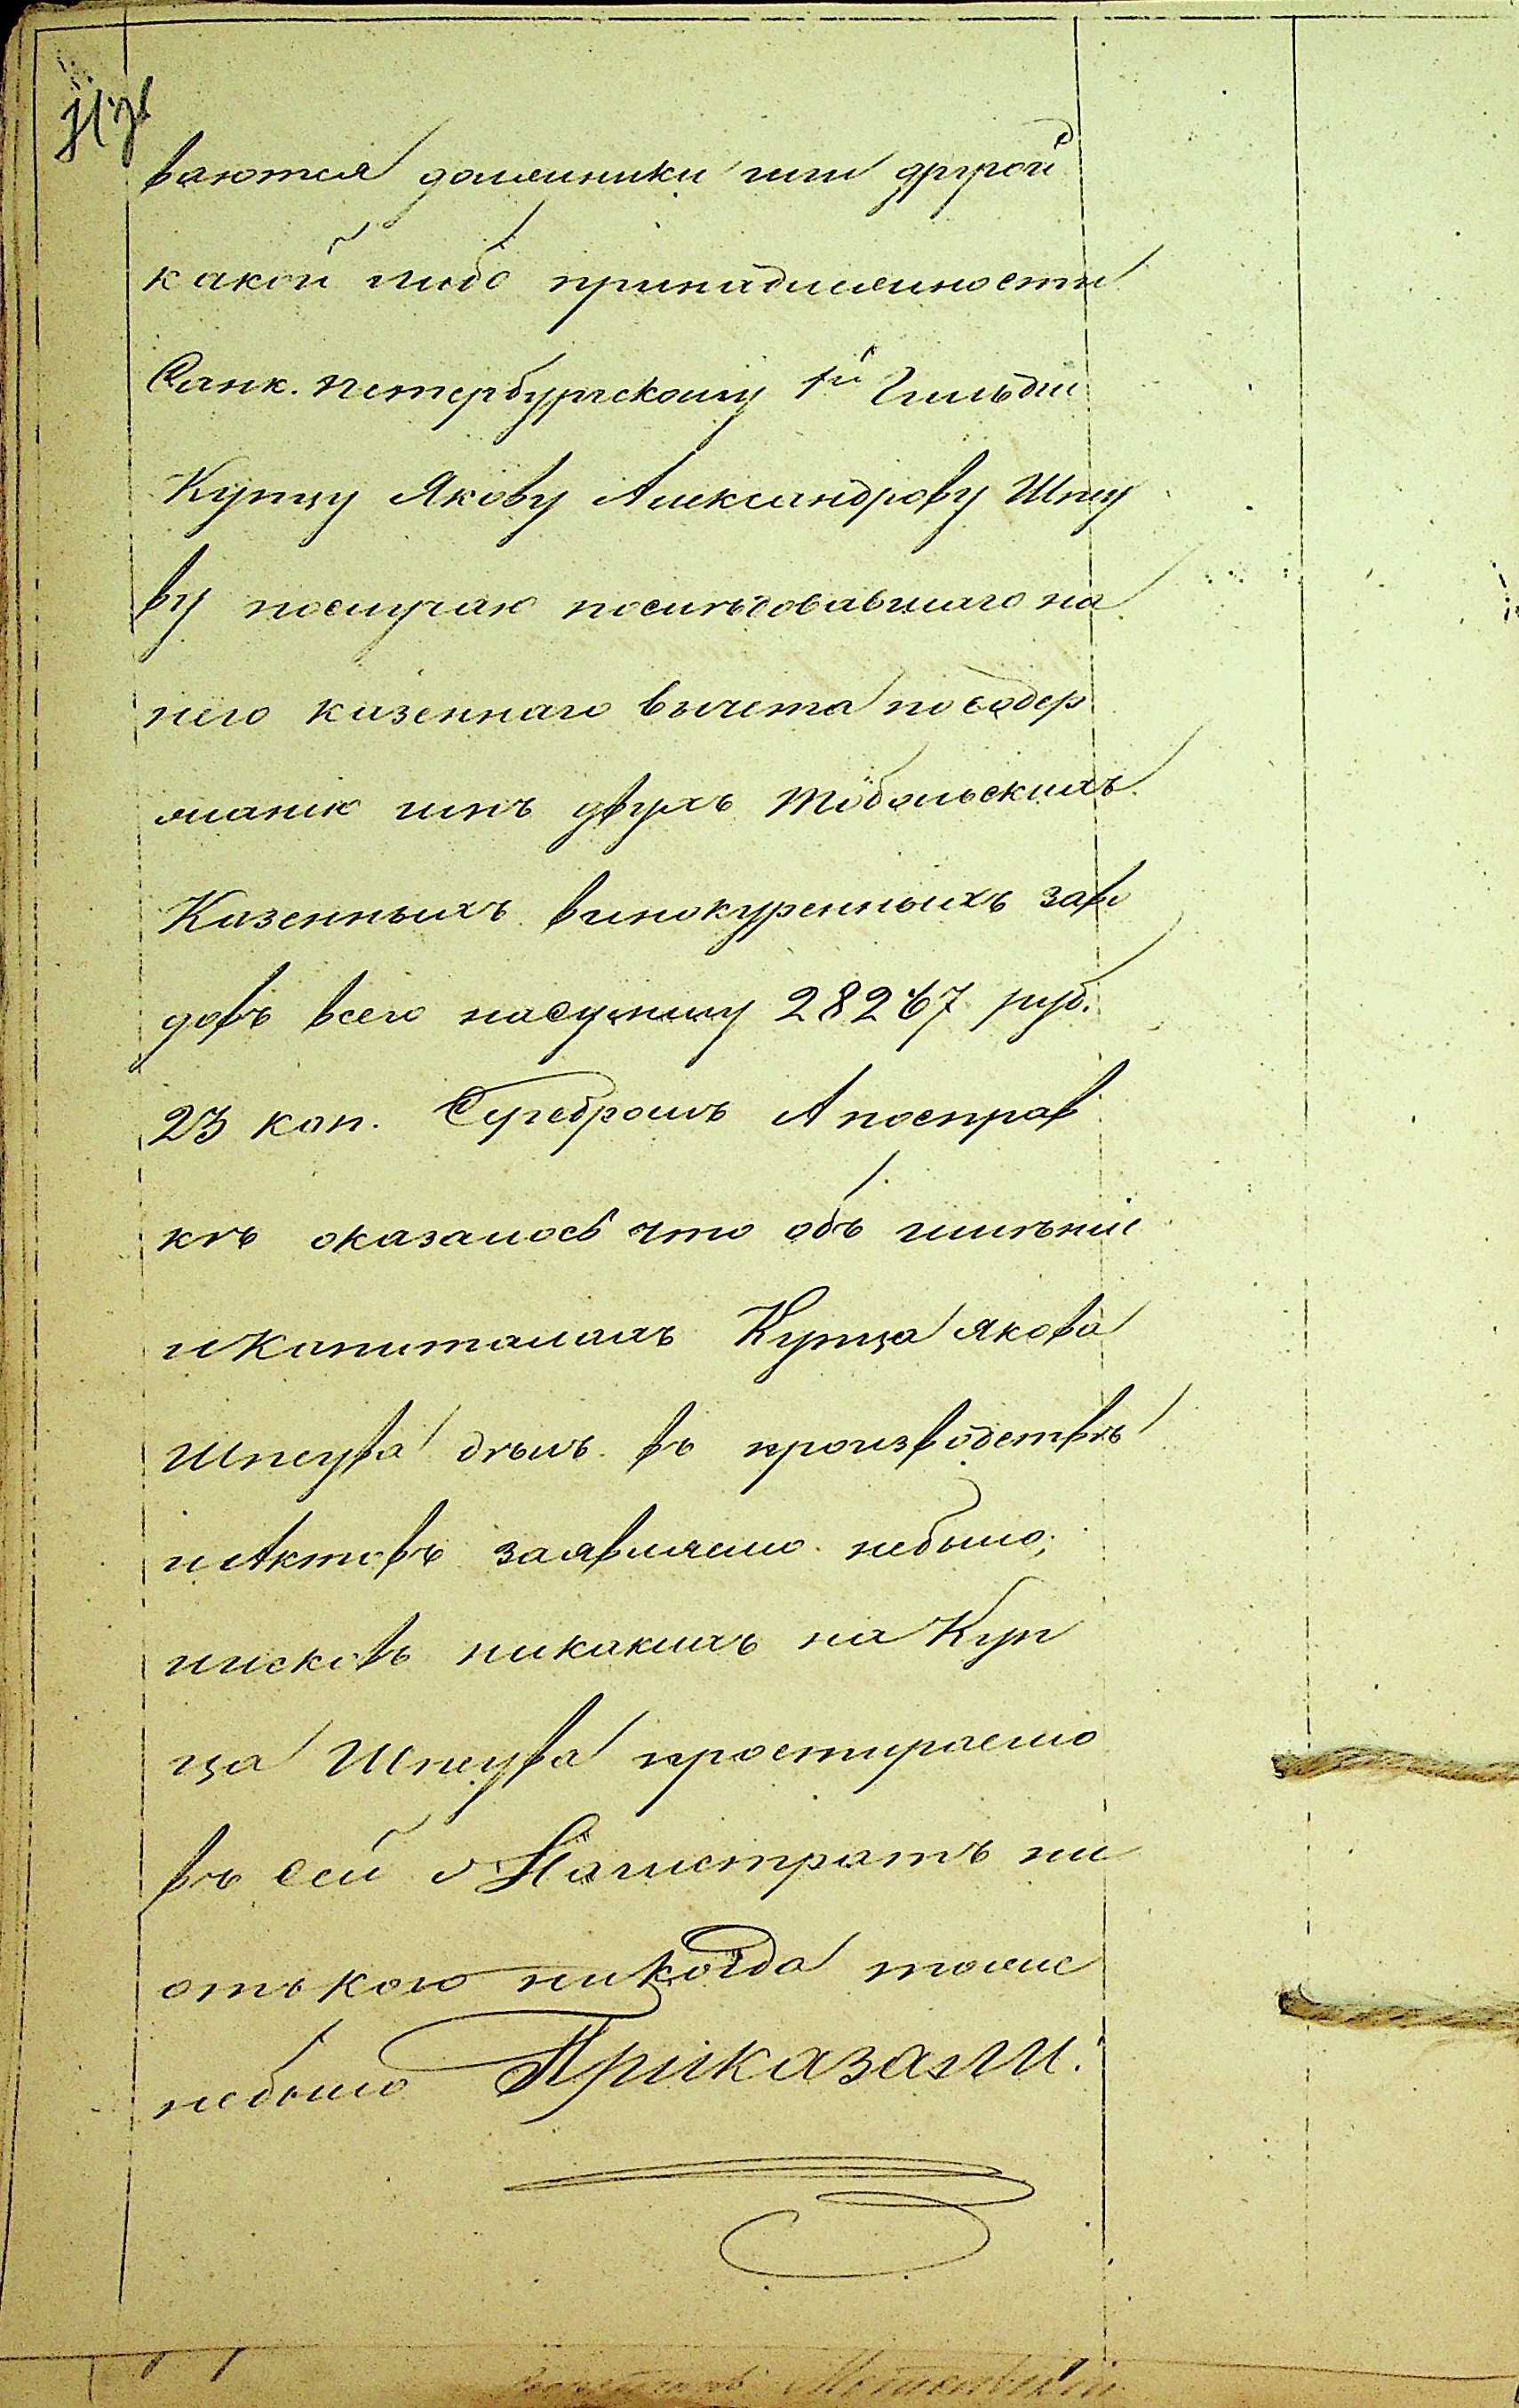 ваются должники или другой
какой либо принадлежности
Санк. петербургскому 1й Гильдіи
Купцу Якову Александрову Шпеу
ву послучаю последовавшаго на
него казеннаго вычета по содер
жанію имъ двухъ Тобольскихъ
Казенныхъ винокуренныхъ заво
довъ всего насумму 28267 руб.
23 коп. Серебромъ А посправ
къ оказалось что объ имѣніи
и Капиталахъ Купца Якова
Шпеува дѣлъ въ производствѣ
и Актовъ заявляемо небыло;
исковъ никакихъ на Куп
ца Шпеува простираемо
въ сей Магистратъ ни
отъ кого никогда также
небыло Приказали: